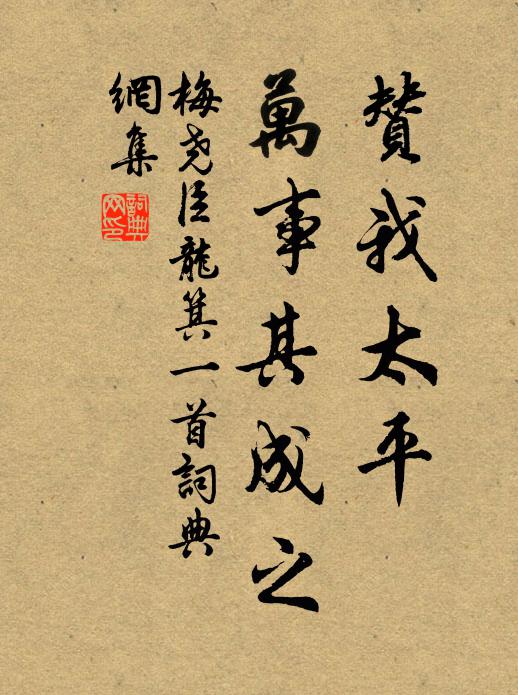 赞我太平
萬事其成之
梅尧臣龍箕一首詞典
網集
詞典
网印